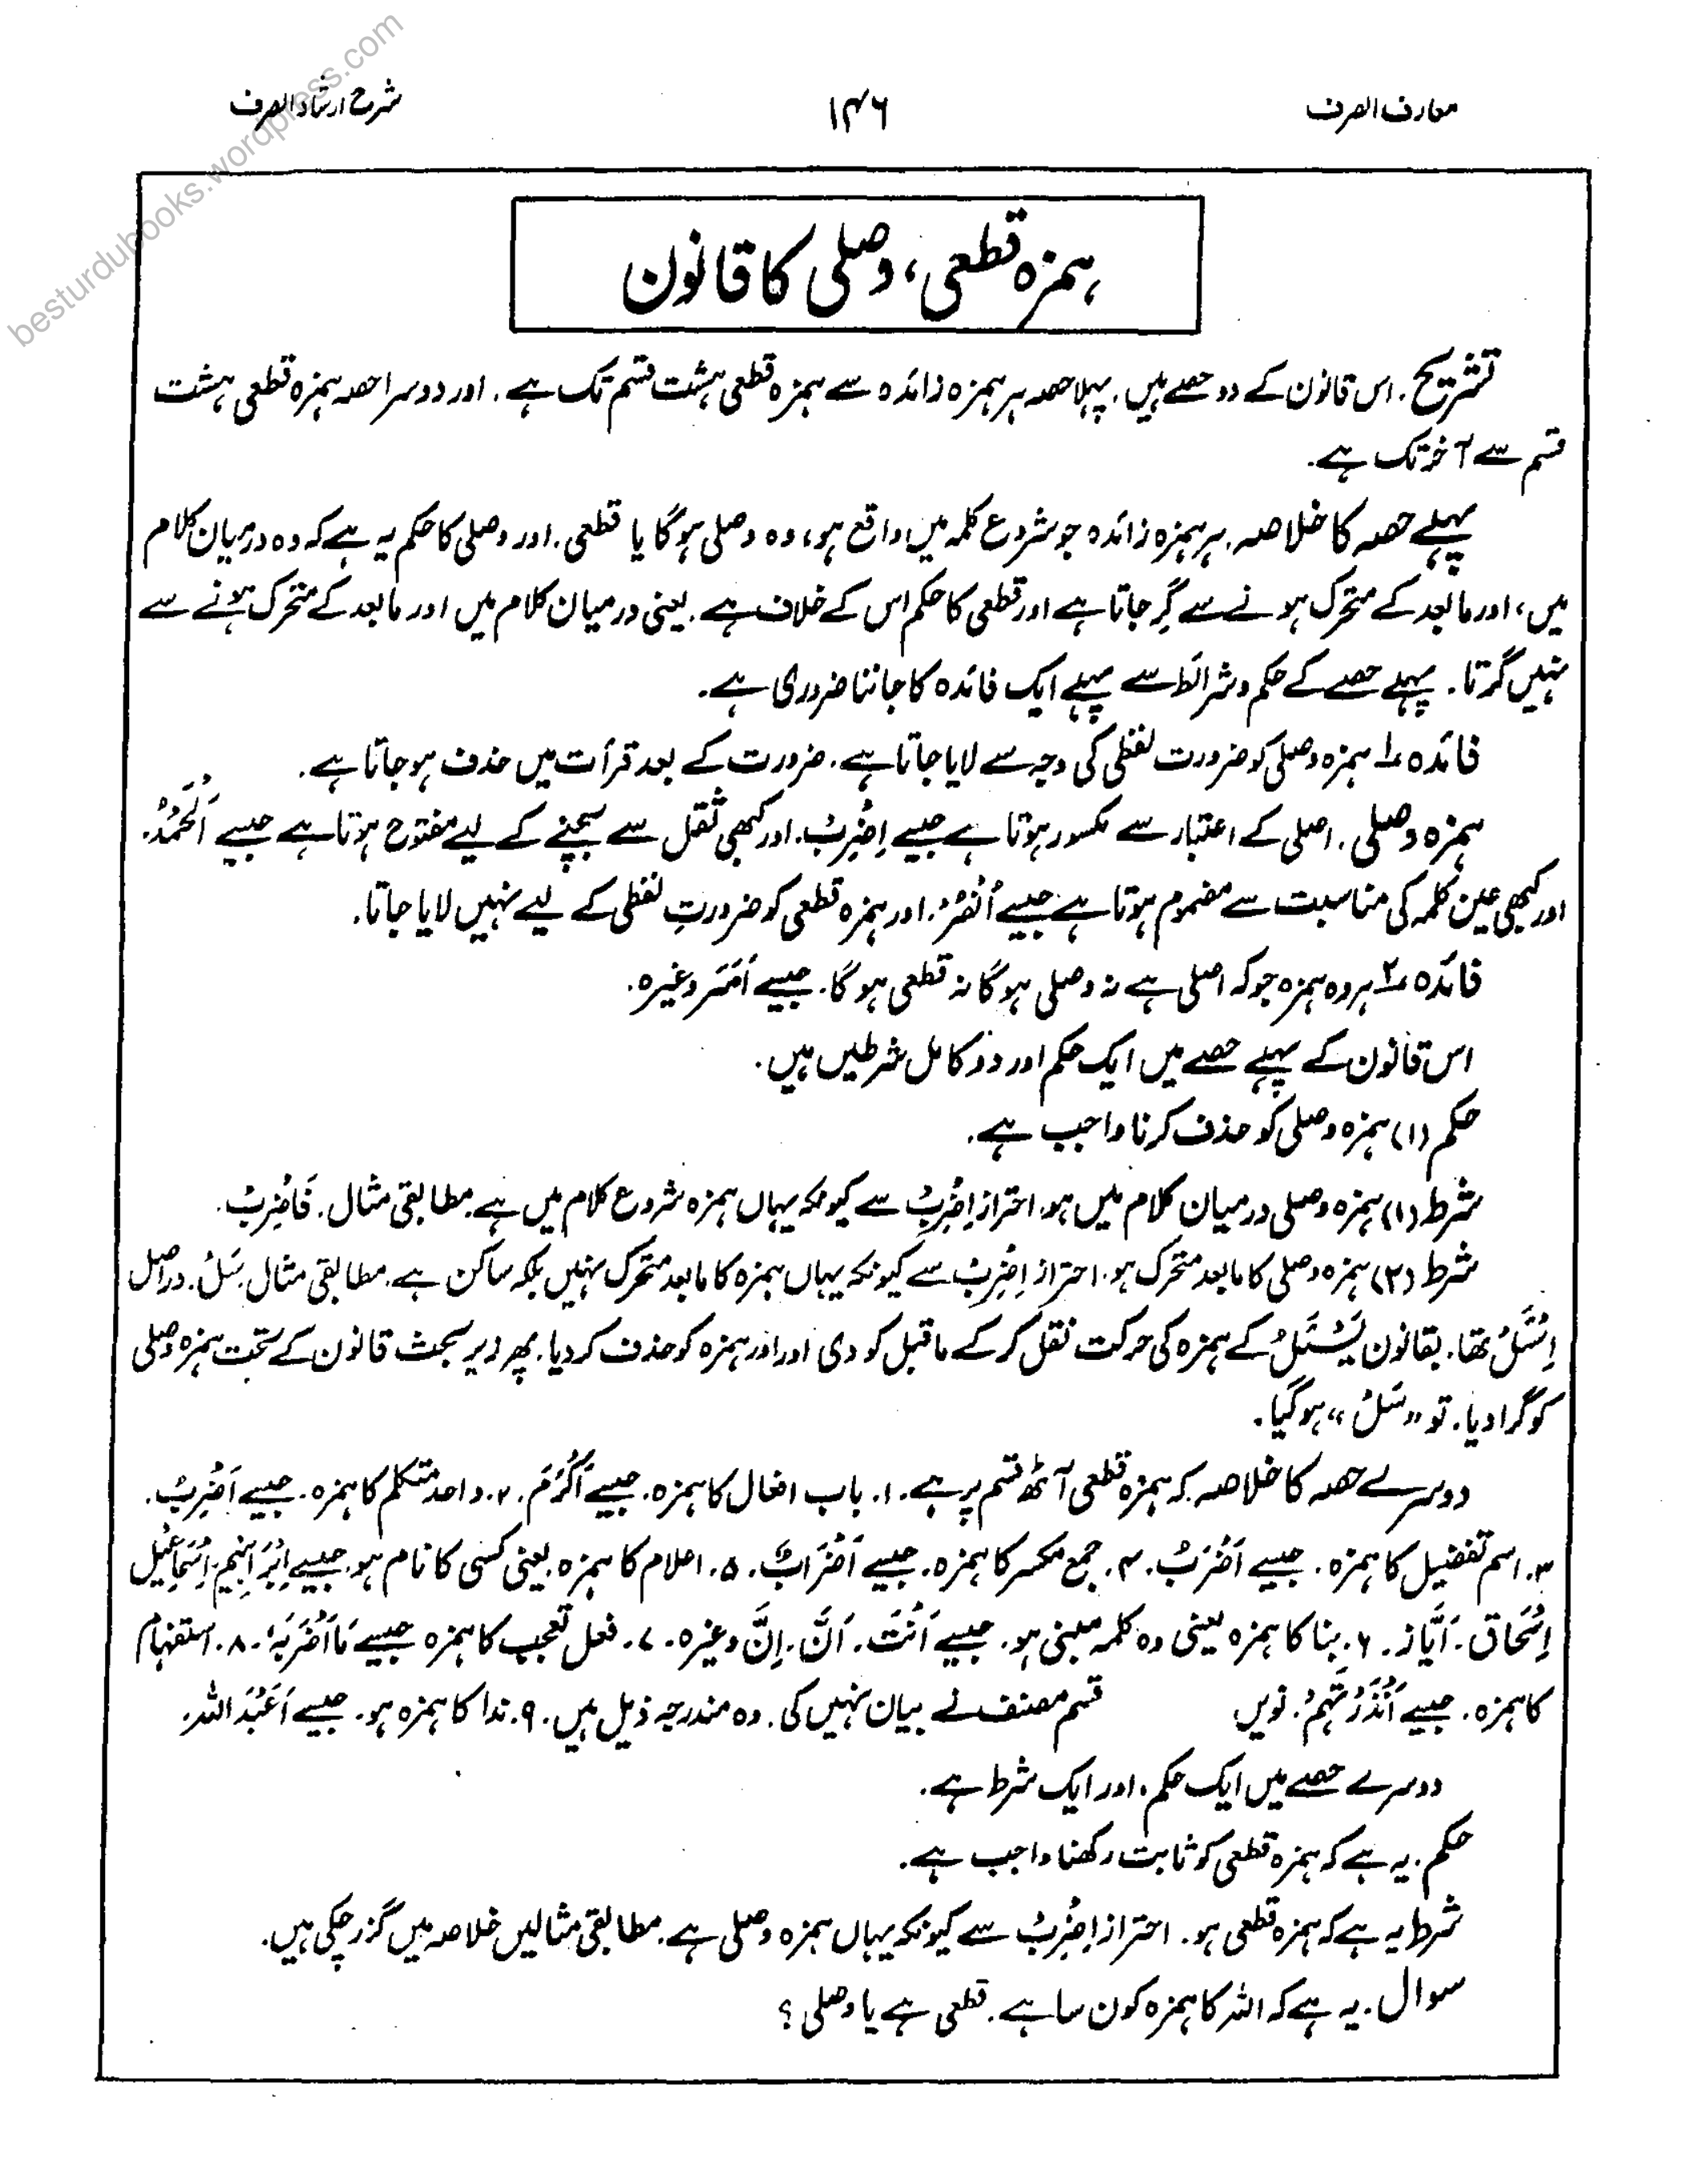 besturdubooks.wordpress.com
معارف الصرف ۱۴۶ شرح ارشاد الصرف
ہمزہ قطعی، وصلی کا قانون
تشریح. اس قانون کے دو حصے ہیں. پہلا حصہ ہر ہمزہ زائدہ سے ہمزہ قطعی ہشت قسم تک ہے. اور دوسرا حصہ ہمزہ قطعی ہشت
قسم سے آخر تک ہے.
پہلے حصہ کا خلاصہ. ہر ہمزہ زائدہ جو شروع کلمہ میں واقع ہو، وہ وصلی ہوگا یا قطعی. اور وصلی کا حکم یہ ہے کہ وہ درمیان کلام
میں، اور مابعد کے متحرک ہونے سے گِر جاتا ہے اور قطعی کا حکم اس کے خلاف ہے. یعنی درمیان کلام میں اور مابعد کے متحرک ہونے سے
نہیں گرتا. پہلے حصے کے حکم و شرائط سے پہلے ایک فائدہ کا جاننا ضروری ہے.
فائدہ ۱ ہمزہ وصلی کو ضرورت لفظی کی وجہ سے لایا جاتا ہے. ضرورت کے بعد قرأت میں حذف ہو جاتا ہے.
ہمزہ وصلی. اصلی کے اعتبار سے مکسور ہوتا ہے جیسے اِضْرِبْ. اور کبھی ثقل سے بچنے کے لیے مفتوح ہوتا ہے جیسے اَلْحَمْدُ.
اور کبھی عین کلمہ کی مناسبت سے مضموم ہوتا ہے جیسے اُنْصُرْ. اور ہمزہ قطعی کو ضرورتِ لفظی کے لیے نہیں لایا جاتا.
فائدہ ۲ ہر وہ ہمزہ جو کہ اصلی ہے نہ وصلی ہوگا نہ قطعی ہوگا. جیسے اَمَرَ وغیرہ.
اس قانون کے پہلے حصے میں ایک حکم اور دو کامل شرطیں ہیں.
حکم (۱) ہمزہ وصلی کو حذف کرنا واجب ہے.
شرط (۱) ہمزہ وصلی درمیان کلام میں ہو. احتراز اِضْرِبْ سے کیونکہ یہاں ہمزہ شروع کلام میں ہے. مطابقی مثال. فَاضْرِبْ.
شرط (۲) ہمزہ وصلی کا مابعد متحرک ہو. احتراز اِضْرِبْ سے کیونکہ یہاں ہمزہ کا مابعد متحرک نہیں بلکہ ساکن ہے. مطابقی مثال سَلْ. دراصل
اِسْئَلْ تھا. بقانون یَسْئَلُ کے ہمزہ کی حرکت نقل کر کے ماقبل کو دی اور اور ہمزہ کو حذف کر دیا. پھر زیر بحث قانون کے تحت ہمزہ وصلی
کو گرا دیا. تو "سَلْ" ہو گیا.
دوسرے حصہ کا خلاصہ کہ ہمزہ قطعی آٹھ قسم پر ہے. ۱. باب افعال کا ہمزہ. جیسے اَکْرَمَ. ۲. واحد متکلم کا ہمزہ. جیسے اَضْرِبُ.
۳. اسم تفضیل کا ہمزہ. جیسے اَضْرَبُ. ۴. جمع مکسر کا ہمزہ. جیسے اَضْرَابٌ. ۵. اعلام کا ہمزہ یعنی کسی کا نام ہو. جیسے اِبْرَاہِیْم. اِسْمَاعِیْل
اِسْحَاق. اَیَّاز. ۶. بنا کا ہمزہ یعنی وہ کلمہ مبنی ہو. جیسے اَنْتَ. اَنَّ. اِنَّ وغیرہ. ۷. فعل تعجب کا ہمزہ جیسے مَا اَضْرَبَہٗ. ۸. استفہام
کا ہمزہ. جیسے اَنْذَرْتَہُمْ. نویں قسم مصنف نے بیان نہیں کی. وہ مندرجہ ذیل ہیں. ۹. ندا کا ہمزہ ہو. جیسے اَعَبْدَ اللہ.
دوسرے حصے میں ایک حکم، اور ایک شرط ہے.
حکم. یہ ہے کہ ہمزہ قطعی کو ثابت رکھنا واجب ہے.
شرط یہ ہے کہ ہمزہ قطعی ہو. احتراز اِضْرِبْ سے کیونکہ یہاں ہمزہ وصلی ہے. مطابقی مثالیں خلاصہ میں گزر چکی ہیں.
سوال. یہ ہے کہ اللہ کا ہمزہ کون سا ہے. قطعی ہے یا وصلی؟